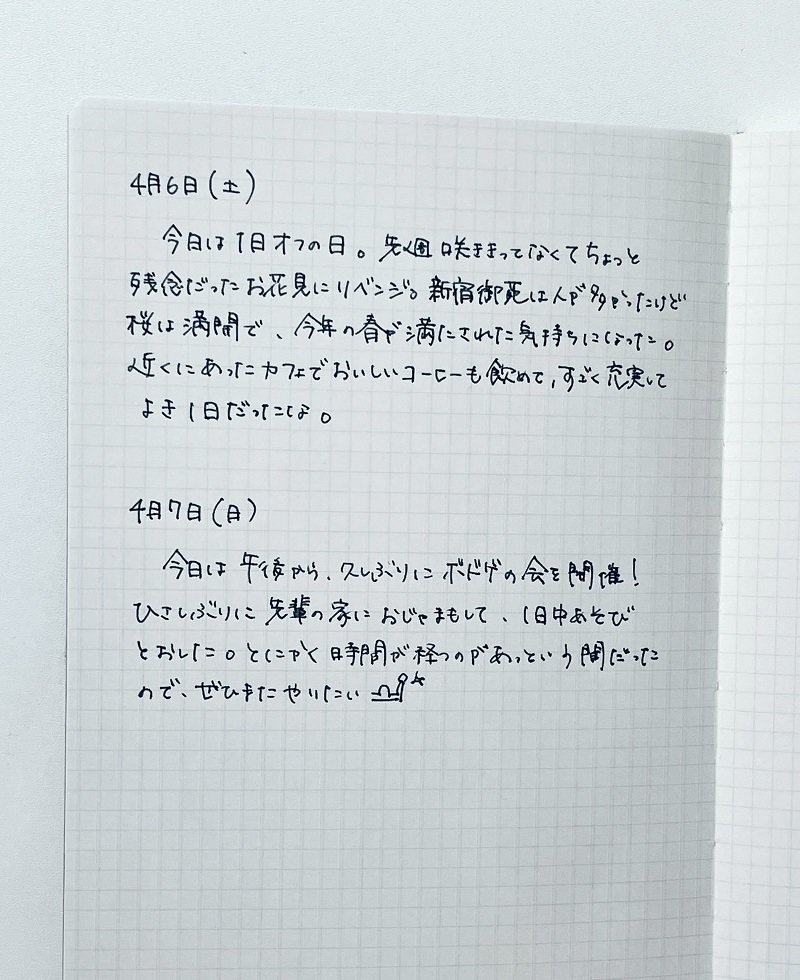 4月6日(土)
今日は1日オフの日。先週咲ききってなくてちょっと
残念だったお花見にリベンジ。新宿御苑は人が多かったけど
桜は満開で、今年の春が満たされた気持ちになった。
近くにあったカフェでおいしいコーヒーも飲めて、すごく充実して
よき1日だったな。
4月7日(日)
今日は午後から、久しぶりにボドゲの会を開催!
ひさしぶりに先輩の家におじゃまもして、1日中あそび
とおした。とにかく時間が経つのがあっという間だった
ので、ぜひまたやりたい